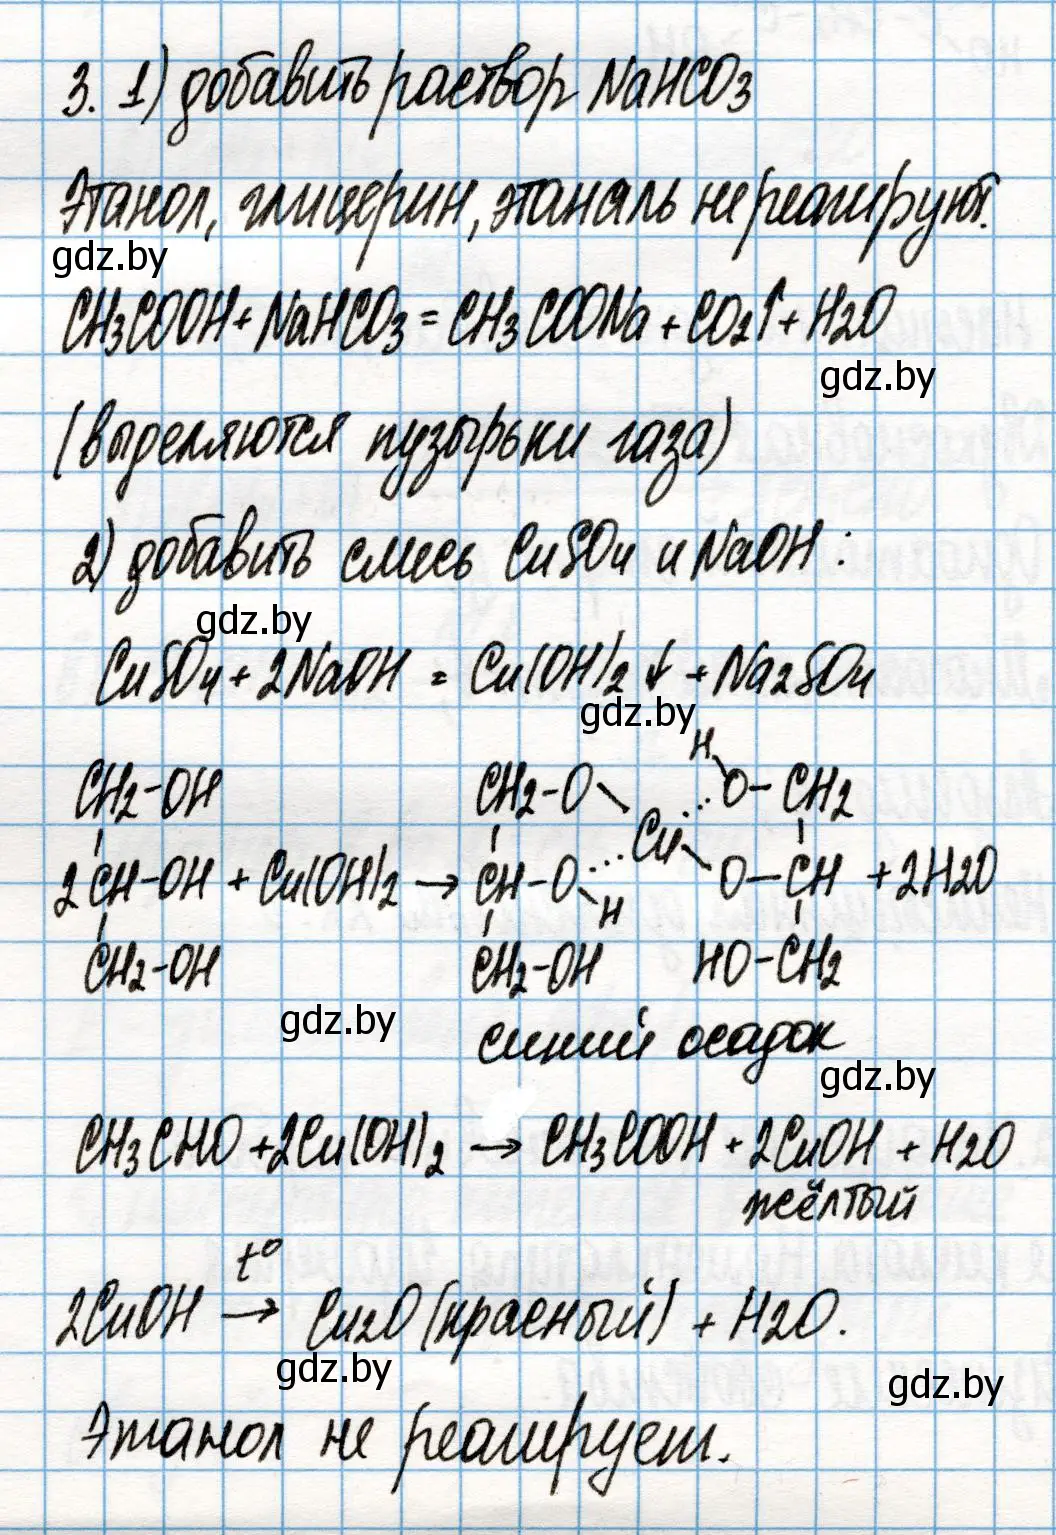 3. 1) добавить раствор NaHCO3
Этанол, глицерин, этаналь не реагируют.
gdz.by
CH3COOH + NaHCO3 = CH3COONa + CO2↑ + H2O
gdz.by
(выделяются пузырьки газа)
2) добавить смесь CuSO4 и NaOH:
gdz.by
CuSO4 + 2NaOH = Cu(OH)2 ↓ + Na2SO4
gdz.by
H
CH2-OH CH2-O O-CH2
Cu
2CH-OH + Cu(OH)2 → CH-O O-CH + 2H2O
H
CH2-OH CH2-OH HO-CH2
gdz.by
синий осадок
gdz.by
CH3CHO + 2Cu(OH)2 → CH3COOH + 2CuOH + H2O
жёлтый
t°
2CuOH → Cu2O (красный) + H2O.
gdz.by
gdz.by
Этанол не реагирует.